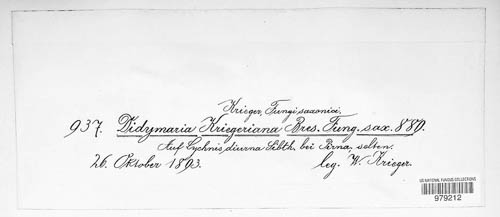 Krieger, Fungi saxonici.
937. Didymaria Kriegeriana Bres. Fung. sax. 880.
Auf Lychnis diurna Sibth. bei Pirna, selten.
26. Oktober 1893. leg. W. Krieger.
US NATIONAL FUNGUS COLLECTIONS
979212